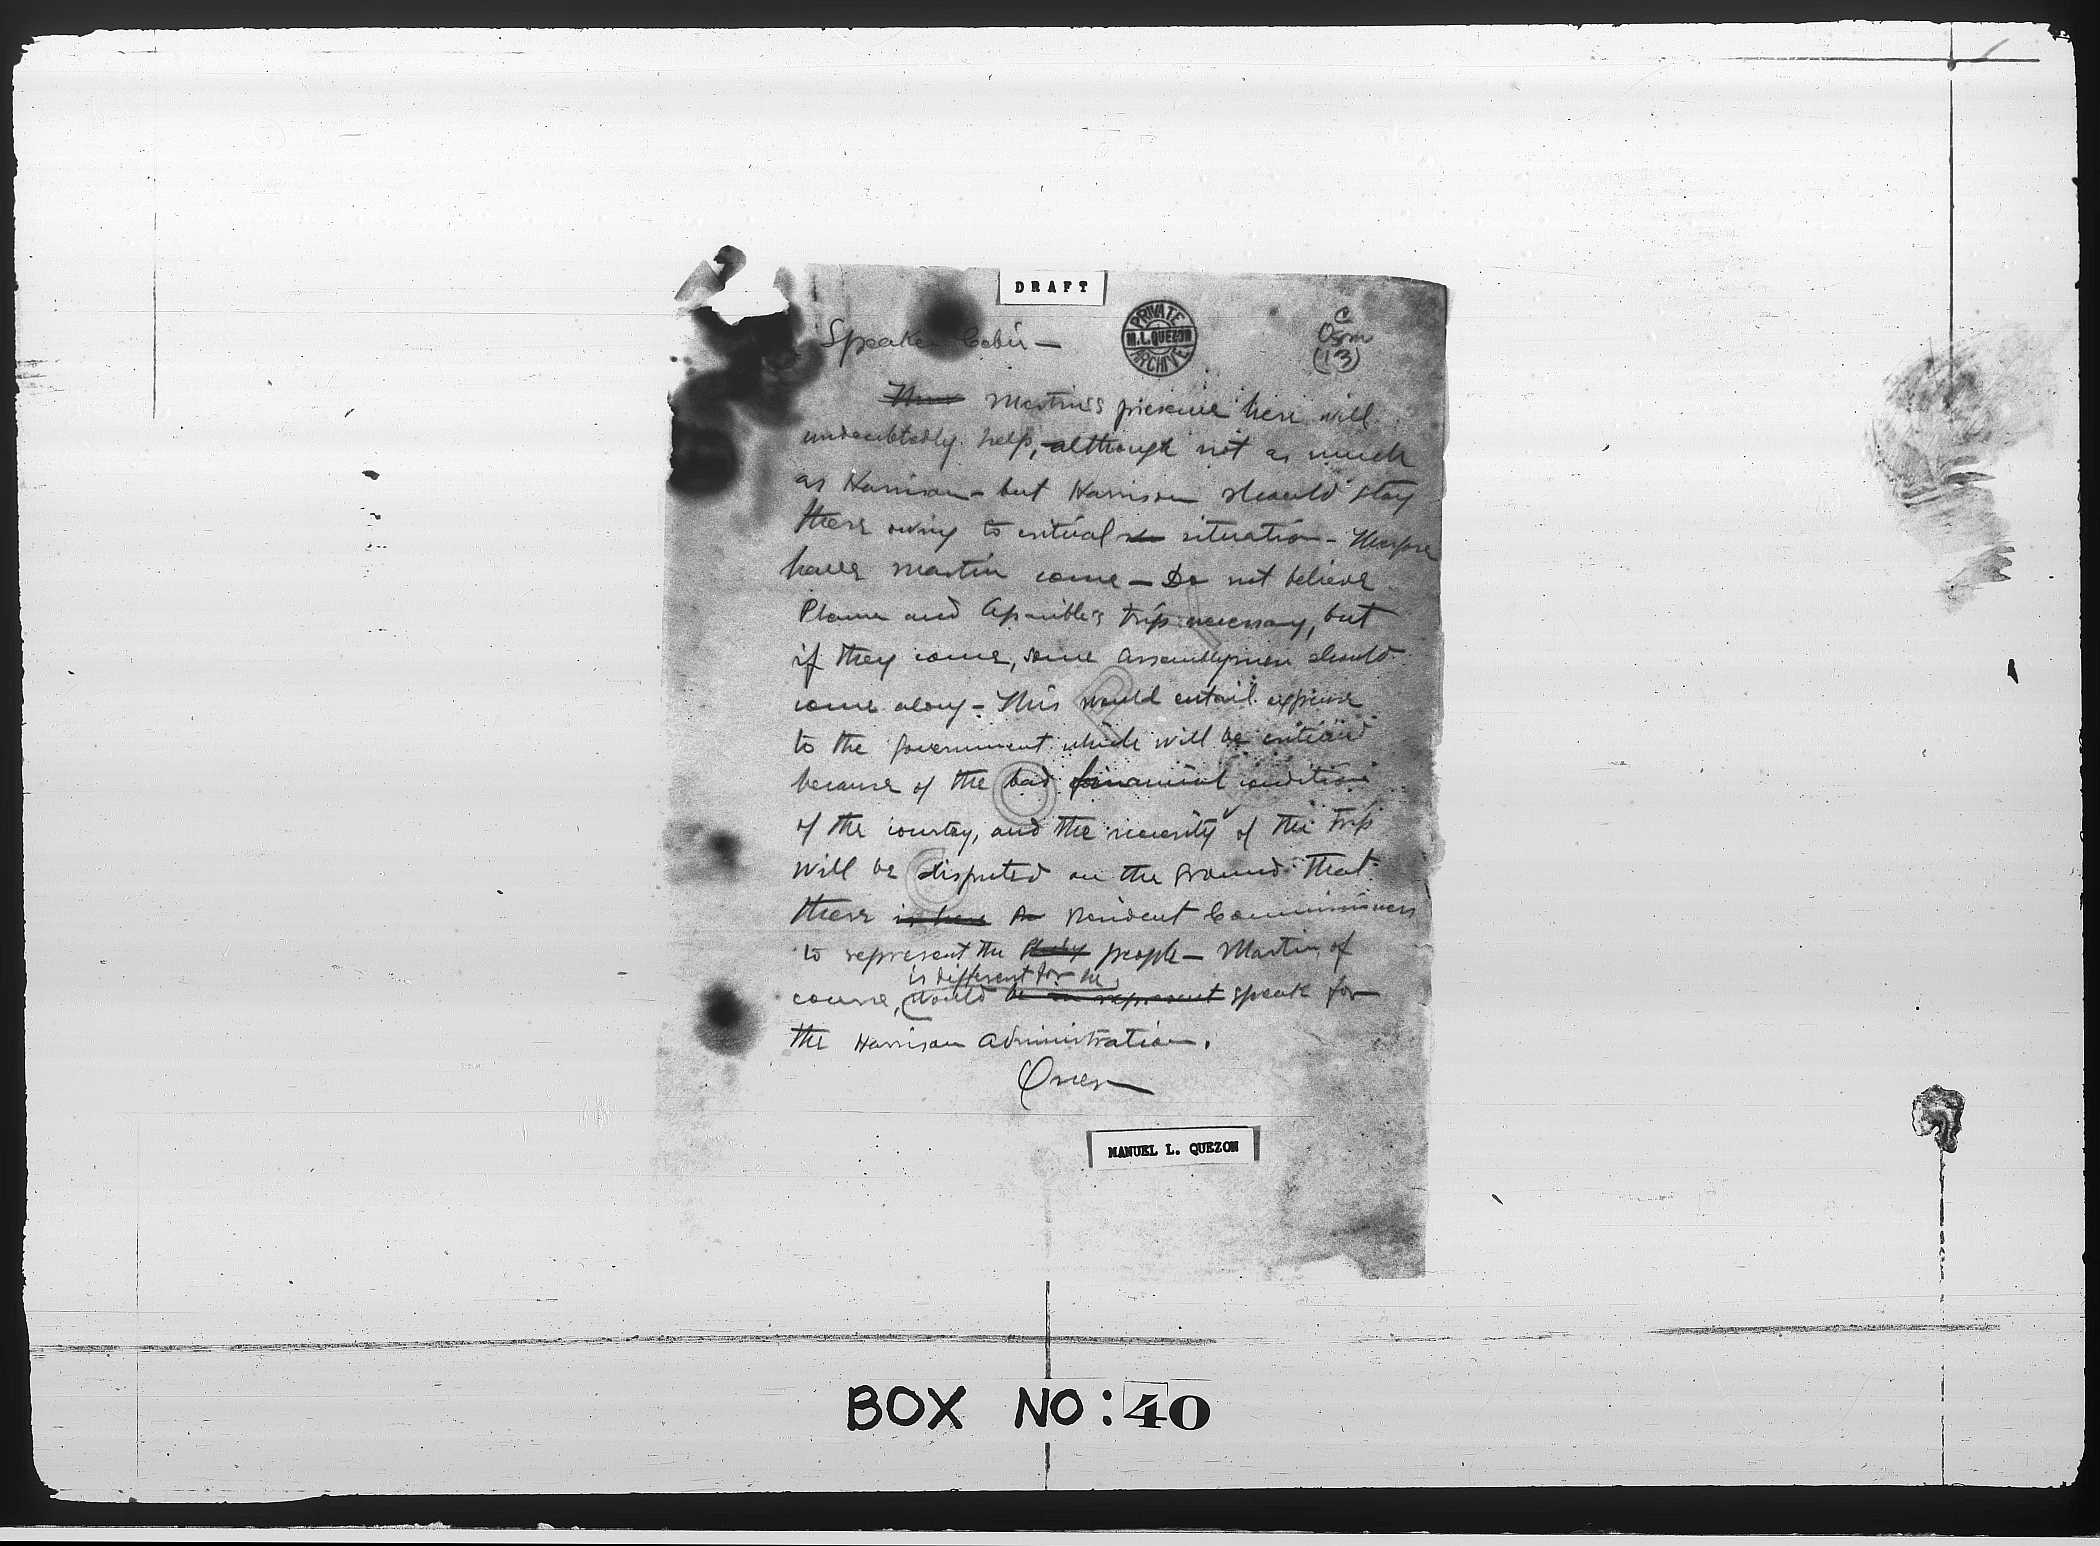 DRAFT
PRIVATE
M.L. QUEZON
ARCHIVE
C
Osm
(13)
Speaker Cebu —
Martin's presence here will
undoubtedly help, although not as much
as Harrison - but Harrison should stay
there owing to critical situation - Therefore
have Martin come - Do not believe
and trip necessary, but
if they come, some assemblymen should
come along - This would entail expense
to the government which will be criticised
because of the bad financial condition
of the country, and the necessity of the trip
will be disputed on the ground that
there is here Resident Commissioners
to represent the people - Martin, of
is different for he
course, would be represent speak for
the Harrison administration.
MANUEL L. QUEZON
BOX NO: 40